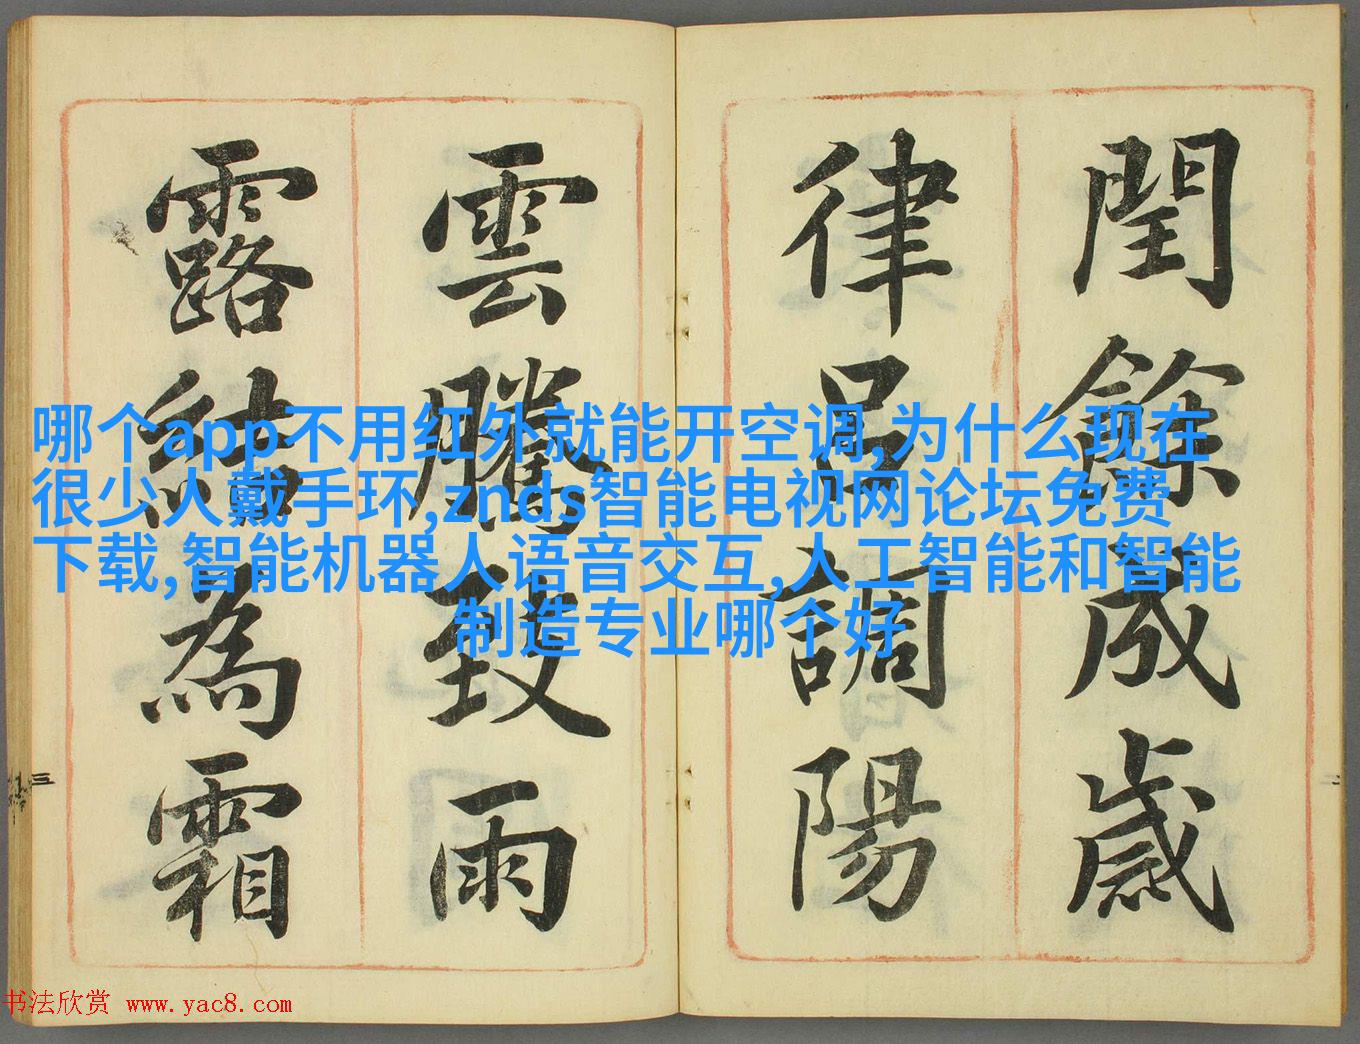 閏餘成歲
律呂調陽
雲騰致雨
露結為霜
哪个app不用红外就能开空调,为什么现在
很少人戴手环,znds智能电视网论坛免费
下载,智能机器人语音交互,人工智能和智能
制造专业哪个好
三
二
书法欣赏 www.yac8.com